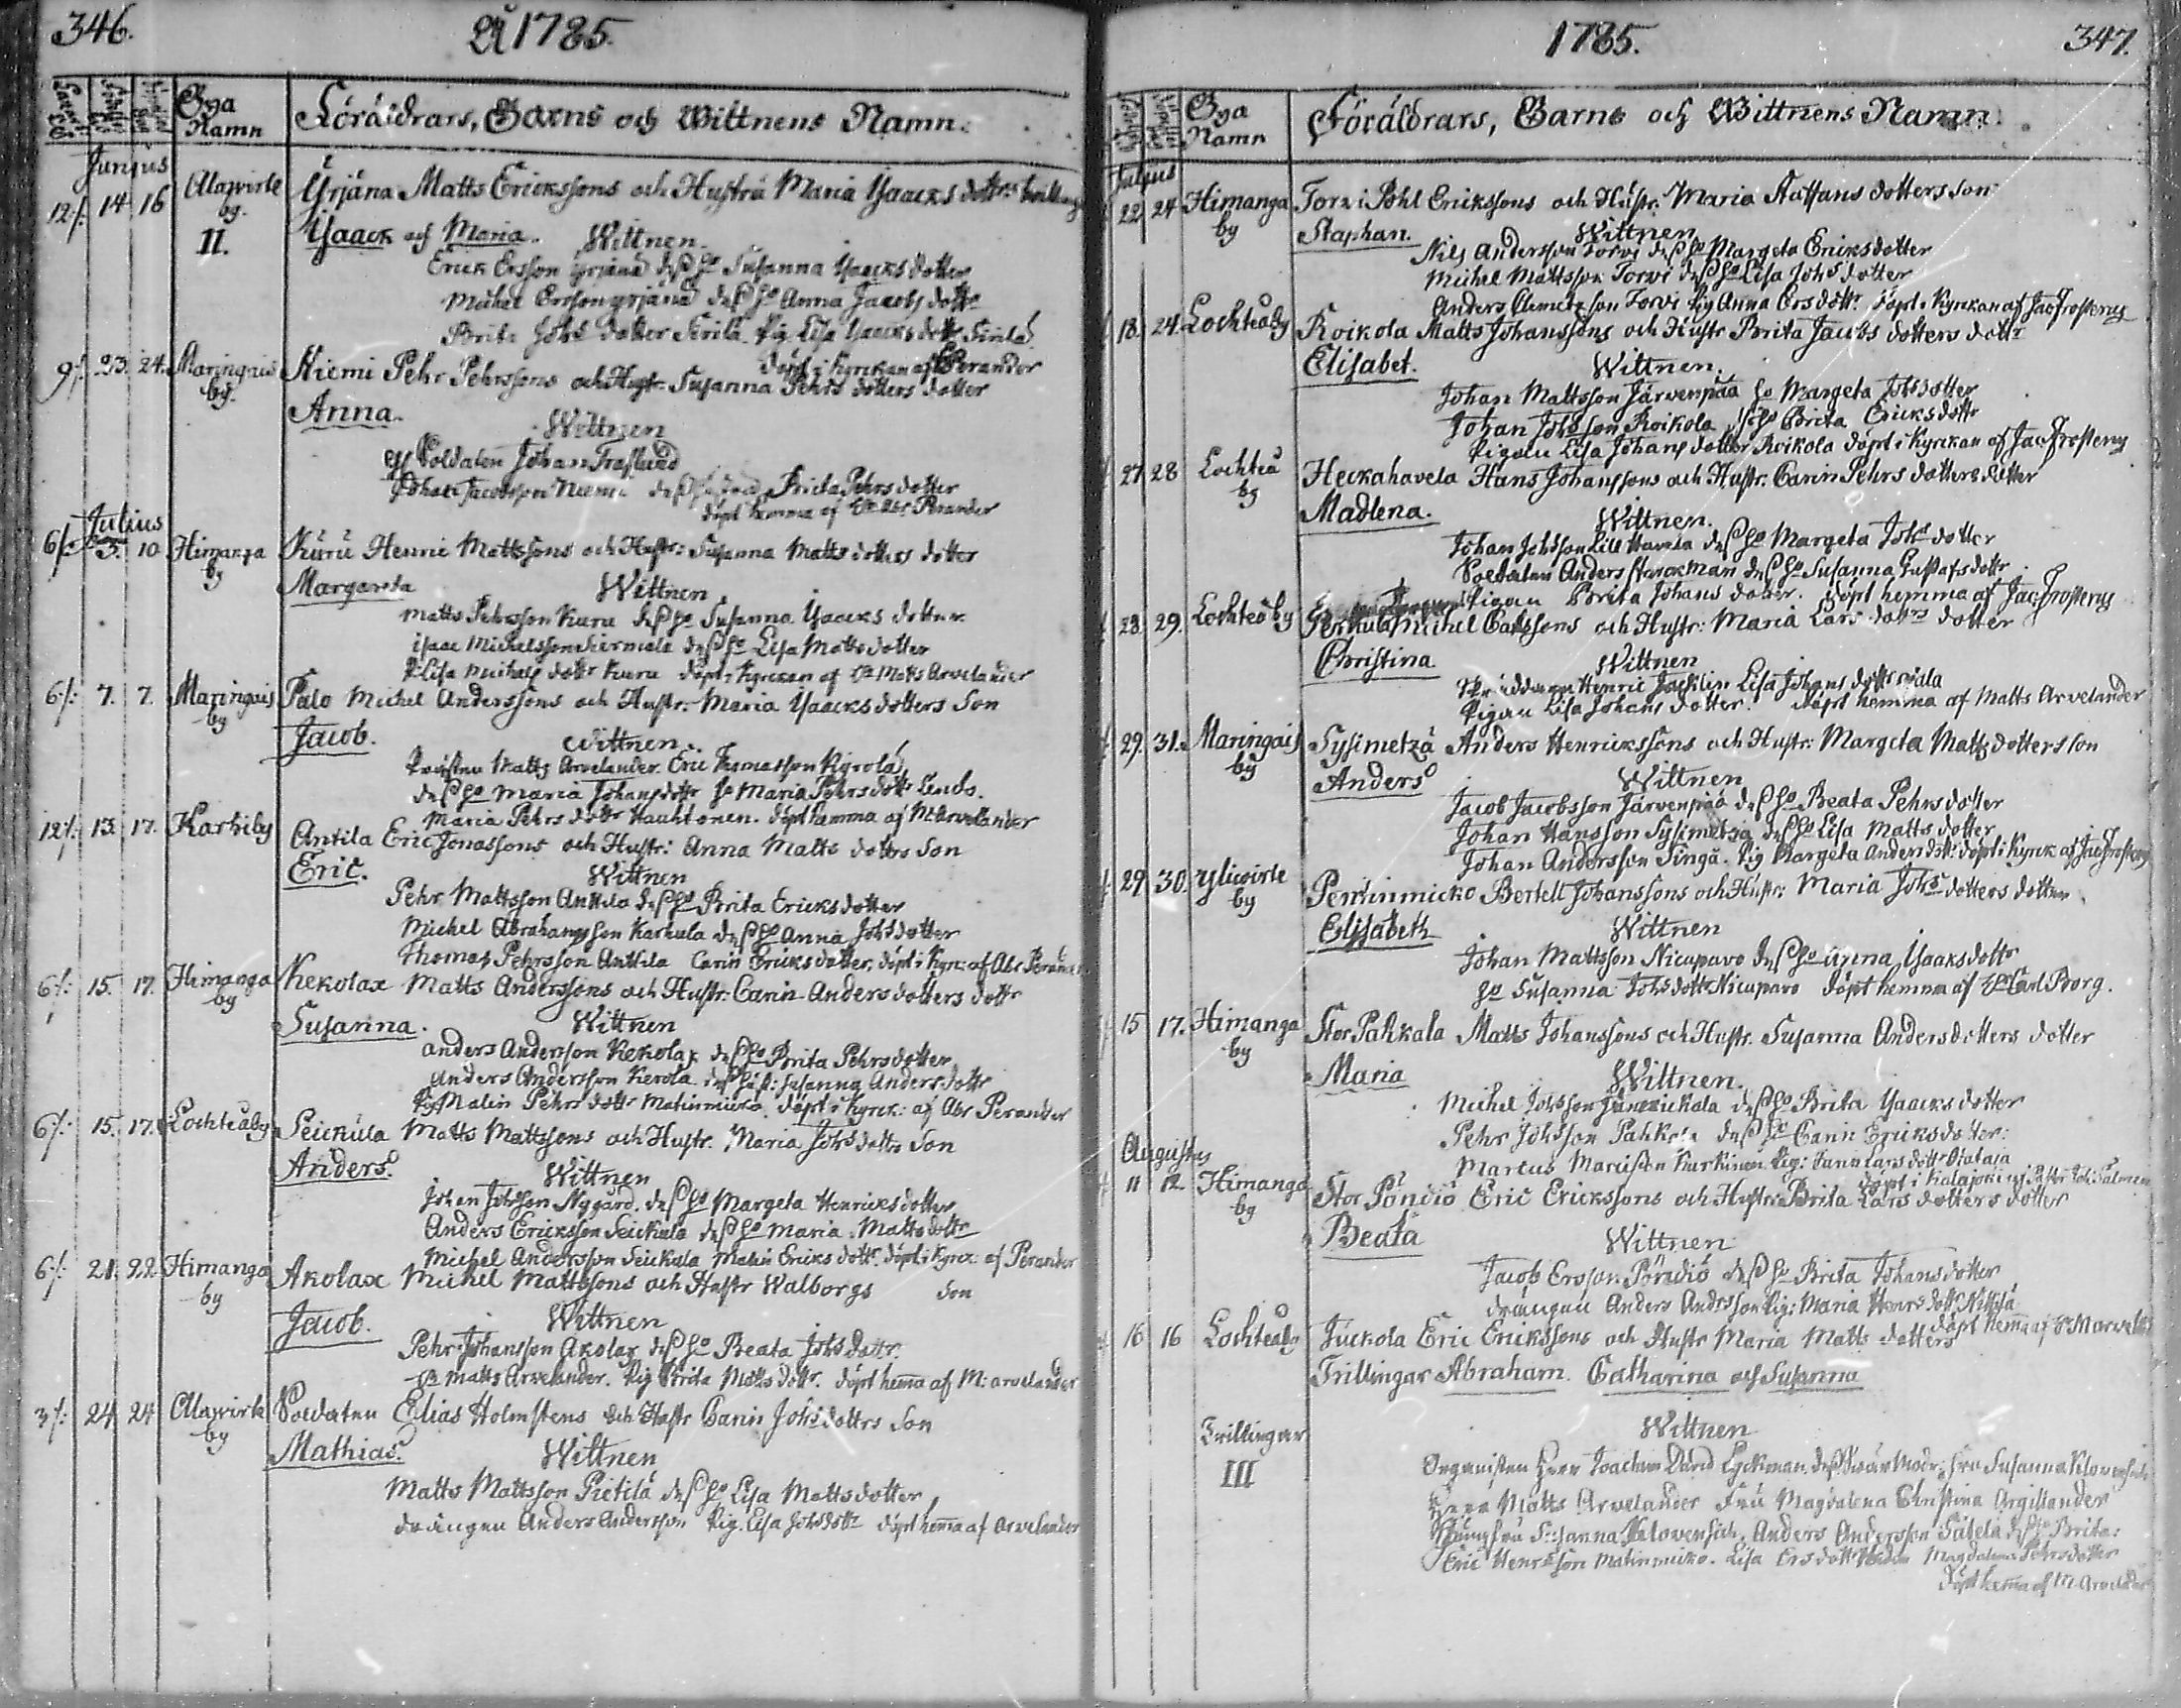 346.
Åhr 1785.
Bya
Namn
Föräldrars, Barns och Wittnens Namn.
Junius
12/: 14 16 Alawirte by. Yrjäna Matts Erickssons och Hustru Maria Yaacks dottrs
II. Yaack och Maria. Wittnen.
Erick Ersson Yrjänä des ho Susanna Yaacksdotter
Michel Ersson yrjänä des ho Anna Jacobs dottr
Brita Johs dotter Pig Lisa Yaacks dottr
döpt i kyrckan af Perander
9/: 23. 24. Maringais by. Niemi Pehr Pehrssons och Hustr. Susanna Pehrs dotters dotter
Anna.
Wittnen
Soldaten Johan
Johan Jacobsson Niemi Brita Pehrs dotter
döpt hemma af Abr. Perander
Julius
6/: 3. 10 Himanga by Kuru Henric Mattssons och Hustr: Susanna Matts dotters dotter
Margareta Wittnen
Matts Pehrsson Kuru des ho Susanna Yaacks dotter
isaac Michelsson des ho Lisa Mattsdotter
P. Lisa Michels dottr Kuru döpt i kyrckan af Matts Arvelander
6/: 7. 7. Maringais by Palo Michel Anderssons och Hustr. Maria Yaacks dotters Son
Jacob. Wittnen.
Prästen Matts Arvelander. Eric Thomasson
des ho Maria Johansdottr ho Maria Pehrsdottr
Maria Pehrs dottr Hauhtonen. döpt hemma af M: Arvelander
12/: 13. 17. Karhiby Antila Eric Jonassons och Hustr: Anna Matts dottrs Son
Eric. Wittnen
Pehr Mattsson Anttila des ho Brita Ericksdotter
Michel Abrahamsson Karhula des ho Anna Johsdotter
Thomas Pehrsson Anttila Carin Ericksdotter, döpt i kyr: af Abr Perander
6/: 15. 17. Himanga by Kekolax Matts Anderssons och Hustr. Carin Anders dotters dottr
Susanna. Wittnen
Anders Andersson Kekolax des ho Brita Pehrsdotter
Anders Andersson Kerola des Hust: Susanna Anders dottr
Pig Malin Pehrs dottr Matinmicko. döpt i kyrck: af Abr Perander
6/: 15. 17. Lochteåby Seickula Matts Mattssons och Hustr. Maria Johs dottrs Son
Anders. Wittnen
Johan Johsson Nygård. des ho Margeta Henricksdotter
Anders Ericksson Seickula des ho Maria Matts dottr
Michel Andersson Seickula Malin Ericks dottr. döpt i kyrck: af Perander
6/: 21. 22. Himanga by Akolax Michel Mattssons och Hustr Walborgs Son
Jacob. Wittnen
Pehr Johansson Akolax des ho Beata Johs dottr.
Matts Arvelander. Pig Brita Matts dottr. döpt hemma af M: arvelander
3/: 24 24 Alawirte by Soldaten Elias Holmstens och Hustr Carin Johsdottrs Son
Mathias. Wittnen
Matts Mattsson Pietilä des ho Lisa Mattsdotter
drängen Anders Andersson Pig. Lisa Johsdottr döpt hema af Arvelander
1785.
347.
Bya
Namn
Föräldrars, Barns och Wittnens Namn.
Julius
22 24 Himanga by Torvi Pohl Erickssons och Hustr. Maria Staffans dotters son
Staphan. Wittnen
Nils Andersson Torvi des ho Margeta Ericksdotter
Michel Mattsson Torvi des ho Lisa Johs dotter
Anders Clemetsson Torvi Pig Anna Ers dottr. döpt i kyrckan af Jac Frosterus
18. 24. Lochteåby Roikola Matts Johanssons och Hustr Brita Jacobs dotters dottr
Elisabet. Wittnen.
Johan Mattsson Järvenpää ho Margeta Johsdotter
Johan Johsson Roikola des ho Brita Ericksdottr
Pigan Lisa Johans dotter Roikola döpt i kyrckan af Jac Frosterus
27 28 Lochteå by Heckahavela Hans Johanssons och Hustr. Carin Pehrs dotters dotter
Madlena. Wittnen.
Johan Johsson Lill Havela des ho Margeta Johs dotter
Soldaten Anders Starckman des ho Susanna Gustafsdottr
Pigan Brita Johans dotter. döpt hemma af Jac: Frosterus
23. 29. Lochteå by Michel Carlssons och Hustr: Maria Lars dottrs dotter
Christina Wittnen
Skräddaren Henric Lisa Johans dottr
Pigan Lisa Johans dotter. döpt hemma af Matts Arvelander
29. 31. Maringais by Sysimetzä Anders Henrickssons och Hustr. Margeta Mattsdotters son
Anders Wittnen
Jacob Jacobsson Järvenpää des ho Beata Pehrsdotter
Johan Hansson Sysimetzä des ho Lisa Matts dotter
Johan Andersson Singå. Pig Margeta Andersdott: döpt i kyrck. af Jac Frosterus
29 30. Yliwirte by Perttinmicko Bertell Johanssons och Hustr: Maria Johs dotters dotter
Elisabeth Wittnen
Johan Mattsson Nicuparo des ho Anna Yaaksdottr
ho Susanna Johsdottr Nicuparo döpt hemma af Carl Borg.
15 17. Himanga by Stor Pahkala Matts Johanssons och Hustr. Susanna Andersdotters dotter
Maria Wittnen.
Michel Johsson des ho Brita Yaacks dotter
Pehr Johsson Pahkala des ho Carin Ericksdotter.
Marcus Marcusson Kurkinen Pig: Carin Lars dottr
döpt i Kalajoki af
Augustus
11 12 Himanga by Stor Pöndiö Eric Erickssons och Hustr: Brita Lars dotters dotter
Beata Wittnen
Jacob Ersson Pöndiö des ho Brita Johansdotter
drängen Anders Andersson Pig: Maria Henrs dottr
döpt hema af M arvel
16 16 Lochteåby Juckola Eric Erickssons och Hustr Maria Matts dotters
Trillingar Abraham. Catharina och Susanna
Wittnen
Trillingar
III
Organisten Herr Joachim David Lyckman. des Swärmodr. fru Susanna
Herr Matts Arvelander Fru Magdalena Christina Argillander
Jungfru Susanna Anders Andersson des ho Brita:
Eric Henrsson Matinmicko. Lisa Ersdottr Magdalena Pehrsdotter
Döpt hema af M Arvelander